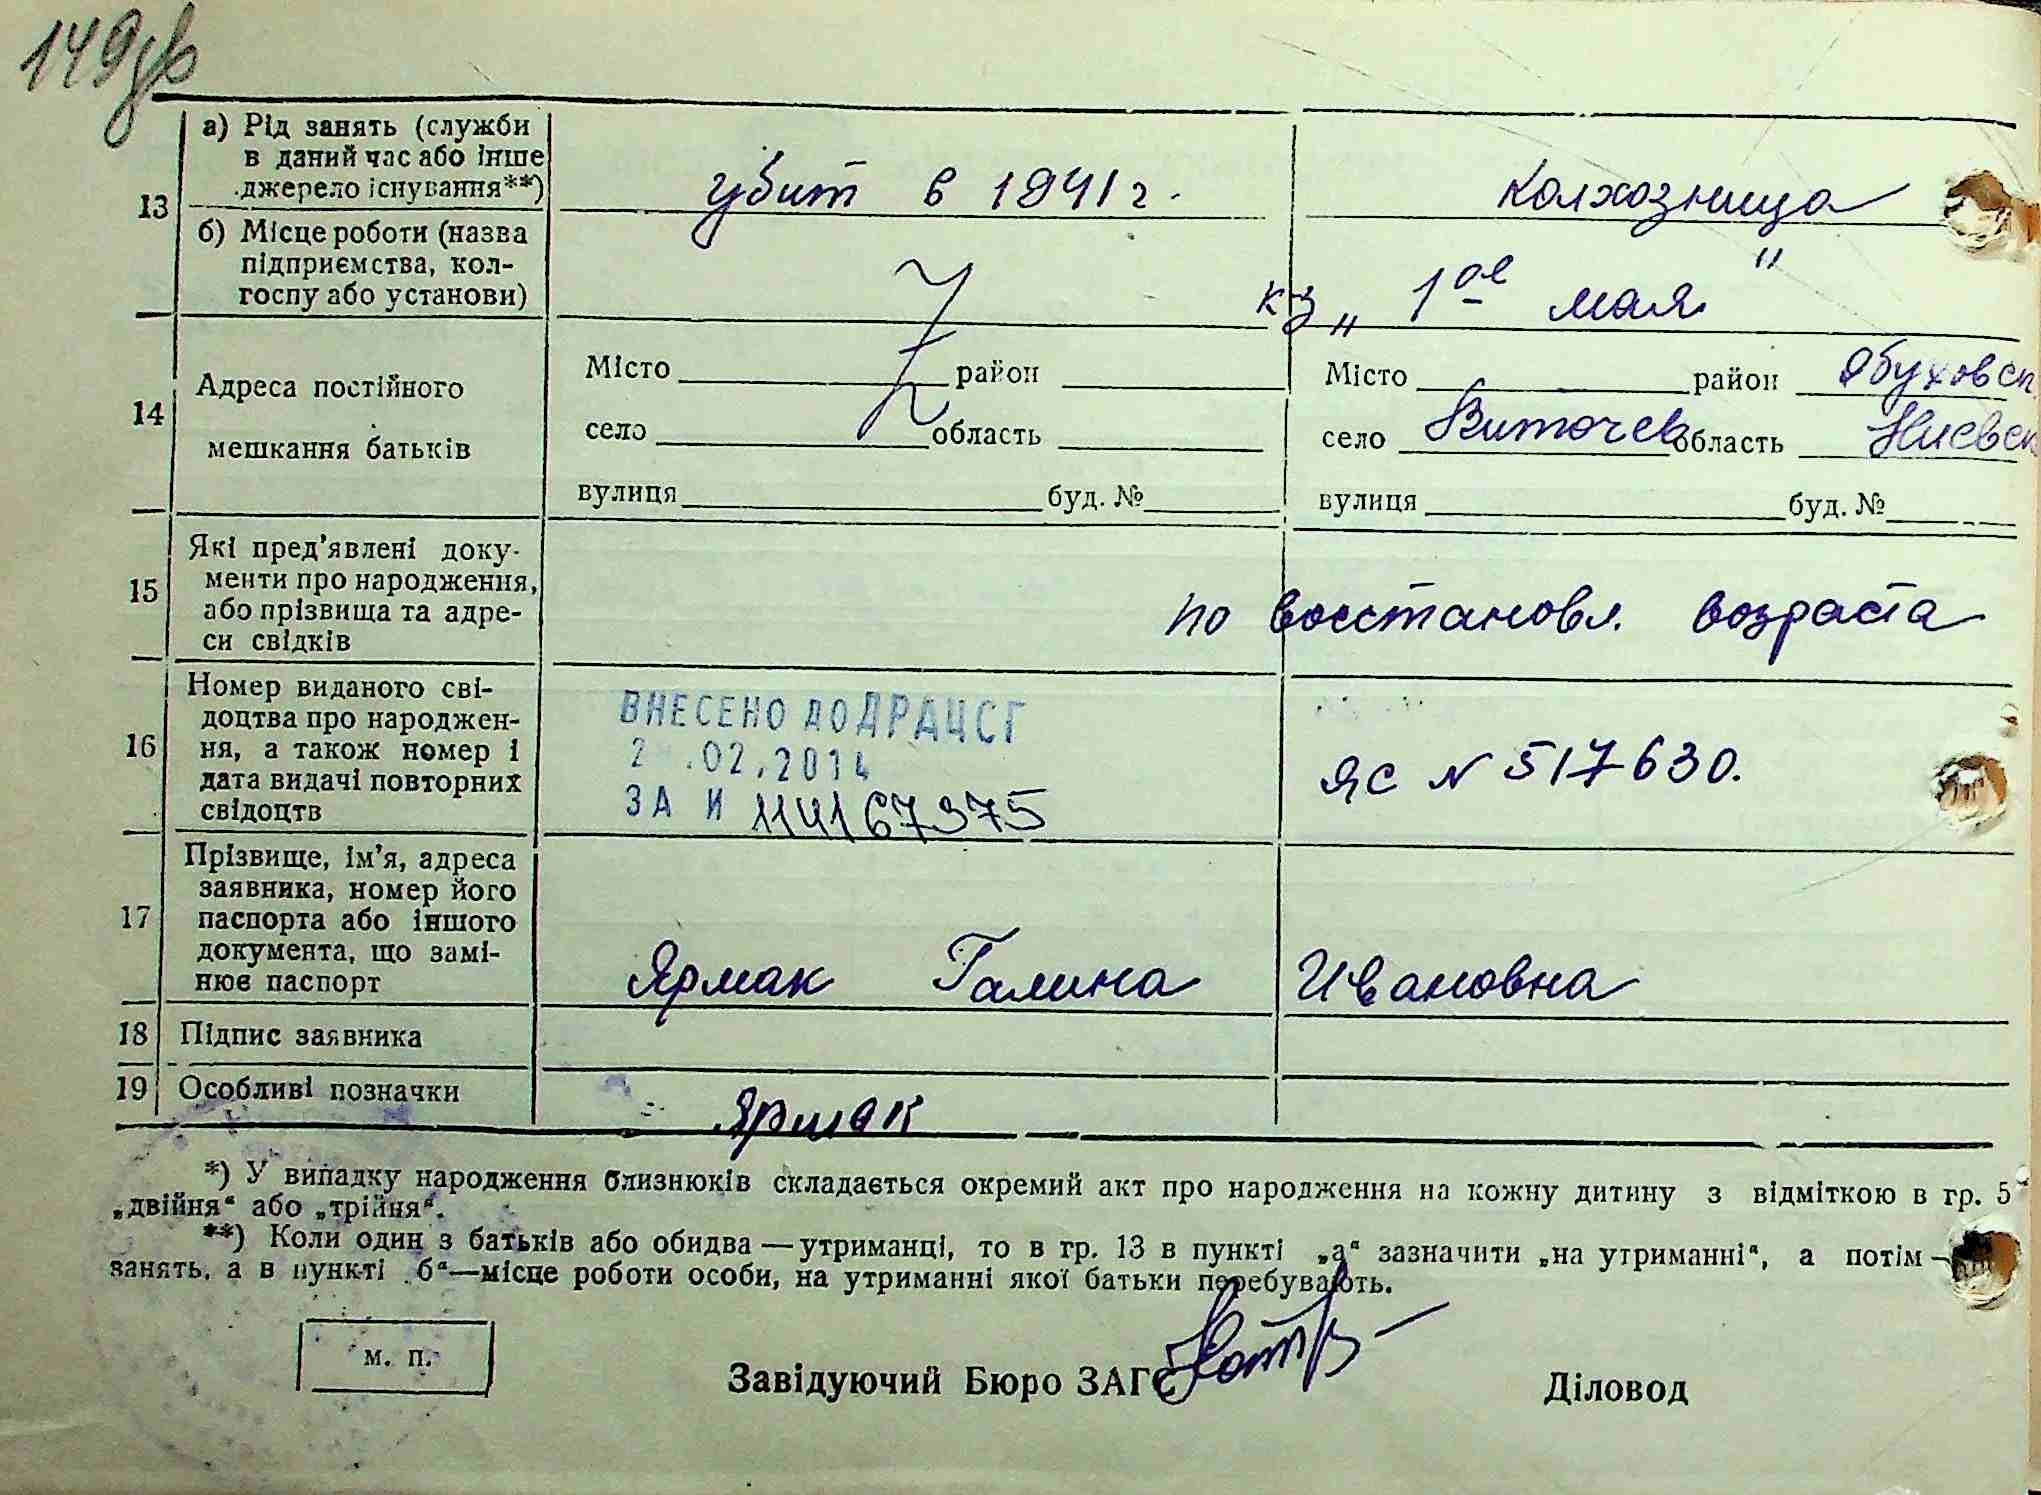 149зв
13
а) Рід занять (служби
в даний час або інше
джерело існування**)
убит в 1941 г.
колхозница
б) Місце роботи (назва
підприємства, кол-
госпу або установи)
кз „ 1ое мая "
14
Адреса постійного
мешкання батьків
Місто район
село область
вулиця буд. №
Місто район Обуховск
село Витачев область Киевск
вулиця буд. №
15
Які пред’явлені доку-
менти про народження,
або прізвища та адре-
си свідків
по восстановл. возраста
16
Номер виданого сві-
доцтва про народжен-
ня, а також номер і
дата видачі повторних
свідоцтв
ВНЕСЕНО ДО ДРАЦСГ
2 .02.2014
ЗА И 114167375
ЯС N 517630.
17
Прізвище, ім’я, адреса
заявника, номер його
паспорта або іншого
документа, що замі-
нює паспорт
Ярмак Галина Ивановна
18 Підпис заявника
19 Особливі позначки
Ярмак
*) У випадку народження близнюків складається окремий акт про народження на кожну дитину з відміткою в гр. 5
„двійня“ або „трійня“.
**) Коли один з батьків або обидва — утриманці, то в гр. 13 в пункті „а“ зазначити „на утриманні“, а потім —
занять, а в пункті „б“—місце роботи особи, на утриманні якої батьки перебувають.
м. п.
Завідуючий Бюро ЗАГС
Діловод